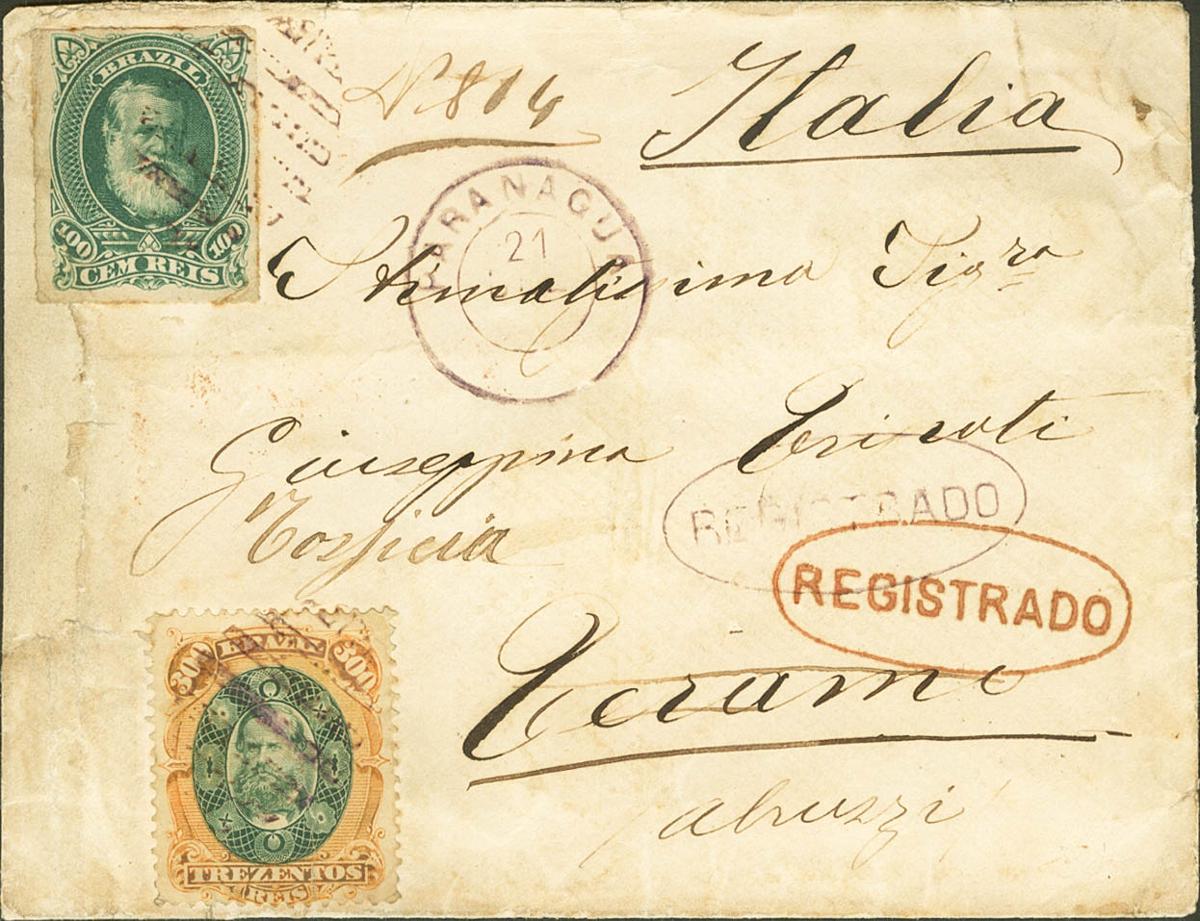 BRAZIL
100 100
CEM REIS
N. 814
Italia
PARANAGUA
21
Stimatissima Sigra
Giuseppina
Tossicia
REGISTRADO
REGISTRADO
Teramo
abruzzi
300 BRAZIL 300
TREZENTOS
REIS